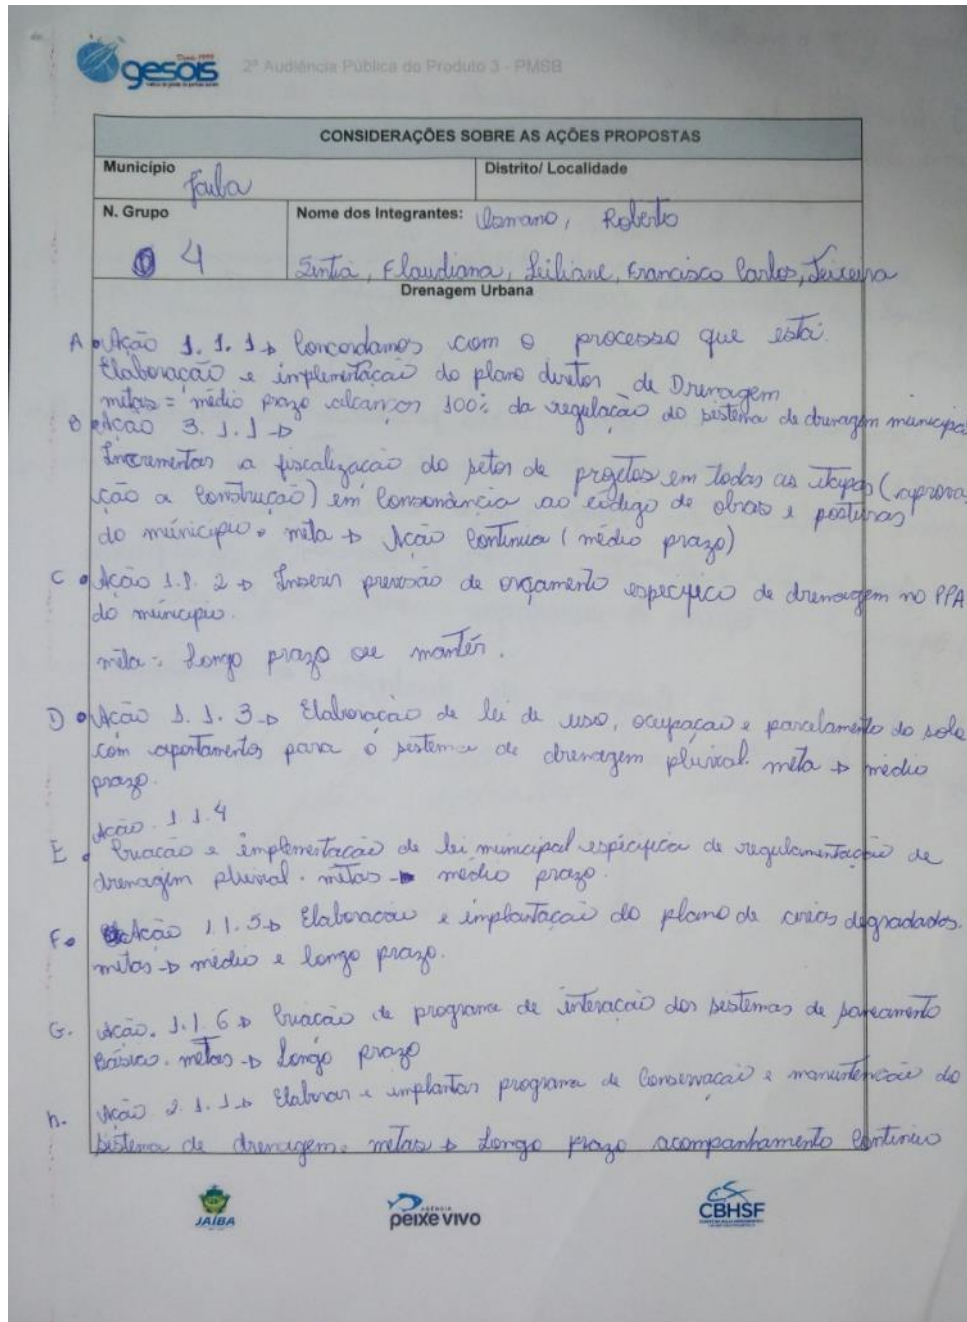 gesois
Desde 1999
2ª Audiência Pública do Produto 3 - PMSB
CONSIDERAÇÕES SOBRE AS AÇÕES PROPOSTAS
Município
Jaíba
Distrito/ Localidade
N. Grupo
4
Nome dos Integrantes: Osmano, Roberto
Sintia, Flaudiana, Leiliane, Francisco Carlos, Teixeira
Drenagem Urbana
A • Ação 1.1.1 → Concordamos com o processo que está.
Elaboração e implementação do plano diretor de Drenagem
metas = médio prazo alcançar 100% da regulação do sistema de drenagem municipal
B • Ação 3.1.1 →
Incrementar a fiscalização do setor de projetos em todas as etapas (aprova
ção a construção) em consonância ao código de obras e posturas
do município. meta → Ação contínua (médio prazo)
C • Ação 1.1.2 → Inserir previsão de orçamento específico de drenagem no PPA
do município.
meta = Longo prazo ou mantér.
D • Ação 1.1.3 → Elaboração de lei de uso, ocupação e parcelamento do solo
com apontamentos para o sistema de drenagem pluvial. meta → médio
prazo.
Ação 1.1.4
E • Criação e implementação de lei municipal específica de regulamentação de
drenagem pluvial. metas → médio prazo.
F • Ação 1.1.5 → Elaboração e implantação do plano de areas degradados.
metas → médio e longo prazo.
G. Ação. 1.1.6 → Criação de programa de interação dos sistemas de saneamento
Básico. metas → Longo prazo
h. Ação 2.1.1 → Elaborar e implantar programa de Conservação e manuntenção do
sistema de drenagem. metas → Longo prazo acompanhamento contínuo
JAÍBA
AGÊNCIA
peixe vivo
CBHSF